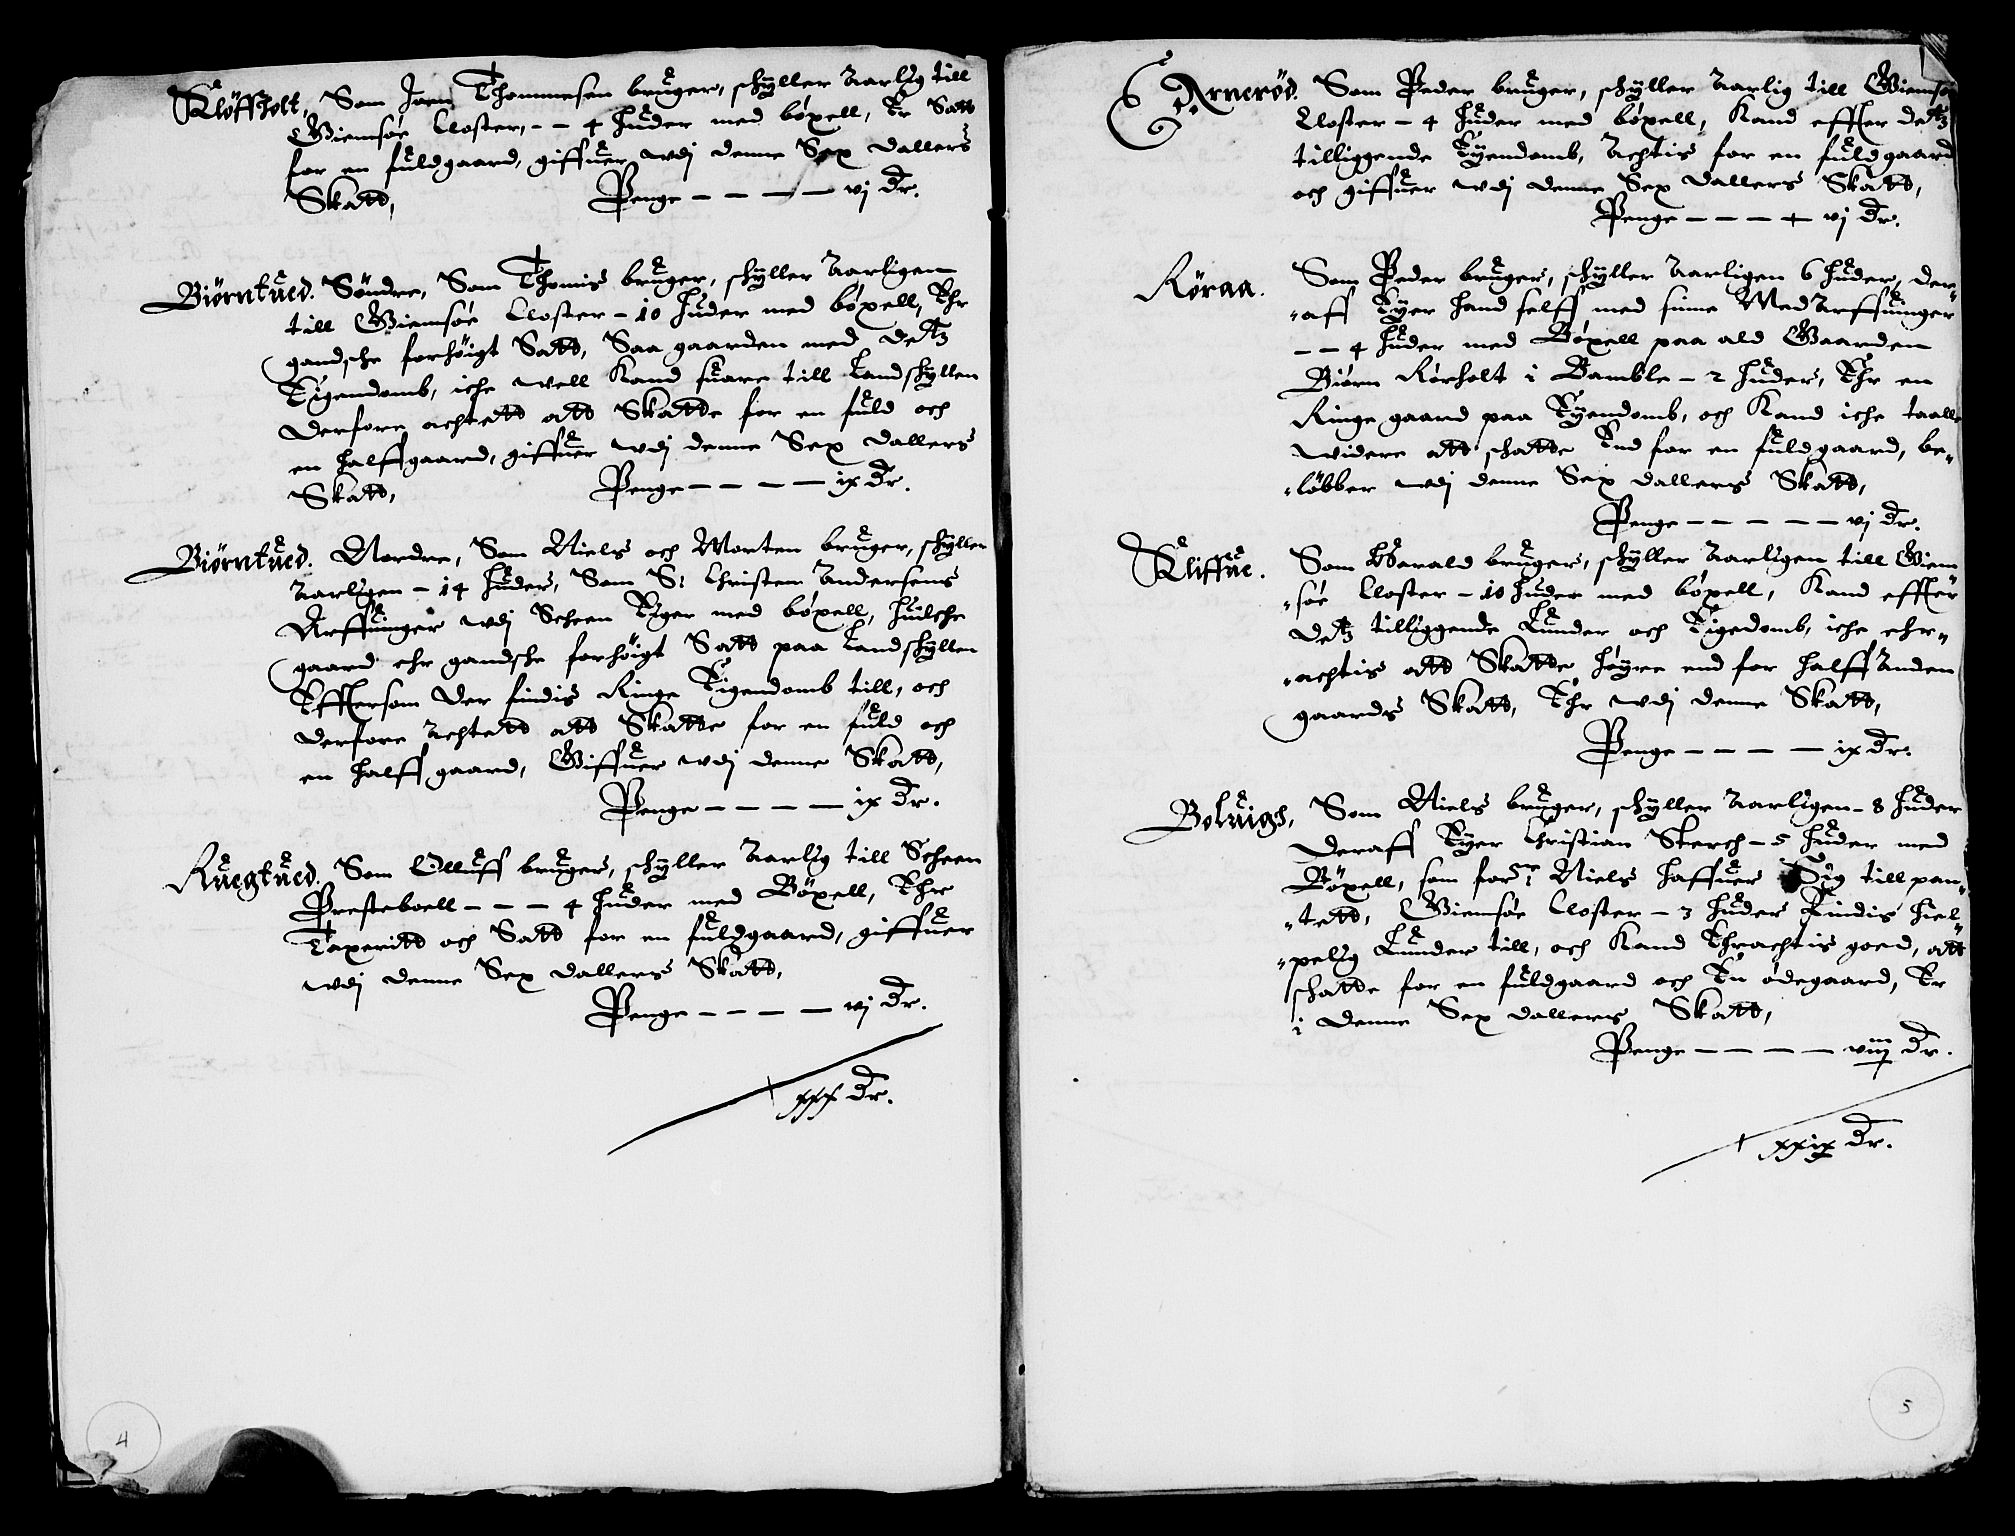 Klöffholt, Som Joen Thommesen bruger, schyller Aarlig till
Giemsöe Closter, - - 4 huder med böxell, Er Satt
for en fuldgaard, giffuer wdj denne Sex Dallers
Skatt, Penge - - - - vj Dr.
Biörntued. Söndre, Som Thomis bruger, schyller Aarligen
till Giemsöe Closter - 10 huder med böxell, Ehr
gandsche forhöigt Satt, Saa gaarden med detz
Eigendomb, iche well Kand suare till Landschyllen
derfore achtett att Skatte for en fuld och
en halffgaard, giffuer wdj denne Sex Dallers
Skatt, Penge - - - - ix Dr.
Biörntued. Nordre, Som Niels och Morten bruger, schyller
Aarligen - 14 huder, Som S: Christen Andersens
Arffuinger wdj Scheen Eiger med böxell, huilche
gaard ehr gandsche forhöigt Satt paa Landschyllen
Effttersom der findis Ringe Eigendomb till, och
derfore Achtett att Skatte for en fuld och
en halff gaard, Giffuer wdj denne Skatt,
Penge - - - - ix Dr.
Ruegtued. Som Olluff bruger, schyller Aarlig till Scheen
Presteboell - - - 4 huder med Böxell, Ehr
Taxeritt och Satt for en fuldgaard, giffuer
wdj denne Sex Dallers Skatt,
Penge - - - - vj Dr.
xxx Dr.
4
Arneröd. Som Peder bruger, schyller Aarlig till Giemsöe
Closter - 4 huder med böxell, Kand effter detz
tilliggende Eyendomb, Achtis for en fuldgaard
och giffuer wdj denne Sex Dallers Skatt,
Penge - - - - vj Dr.
Röraa. Som Peder bruger, schyller Aarligen 6 huder, der-
-aff Eyer hand selff med sinne Med Arffuinger
- - 4 huder med Böxell paa ald Gaarden
Biörn Rörholt i Bamble - 2 huder, Ehr en
Ringe gaard paa Eyendomb, och Kand iche taalle
widere att schatte End for en fuldgaard, be-
-löbber wdj denne Sex Dallers Skatt,
Penge - - - - - vj Dr.
Kliffue. Som Harald bruger, schyller Aarligen till Giem
-söe Closter - 10 huder med böxell, Kand effter
detz tilliggende Lunder och Eigedomb, iche ehr-
-achtis att Skatte höyre end for halff Anden
gaards Skatt, Ehr wdj denne Skatt,
Penge - - - - ix Dr.
Boluigs, Som Niels bruger, schyller Aarligen - 8 huder
Deraff Eyer Christian Sterch - 5 huder med
Böxell, som forne: Niels haffuer Sig till pan-
-tett, Giemsöe Closter - 3 huder Findis hiel-
-pelig Lunder till, och Kand Ehrachtis goed, att
schatte for en fuldgaard och En ödegaard, Er
i denne Sex Dallers Skatt,
Penge - - - - viij Dr.
xxix Dr.
5